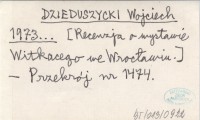 DZIEDUSZYCKI Wojciech
1973... [Recenzja o wystawie
Witkacego we Wrocławiu.]
– Przekrój nr 1474.